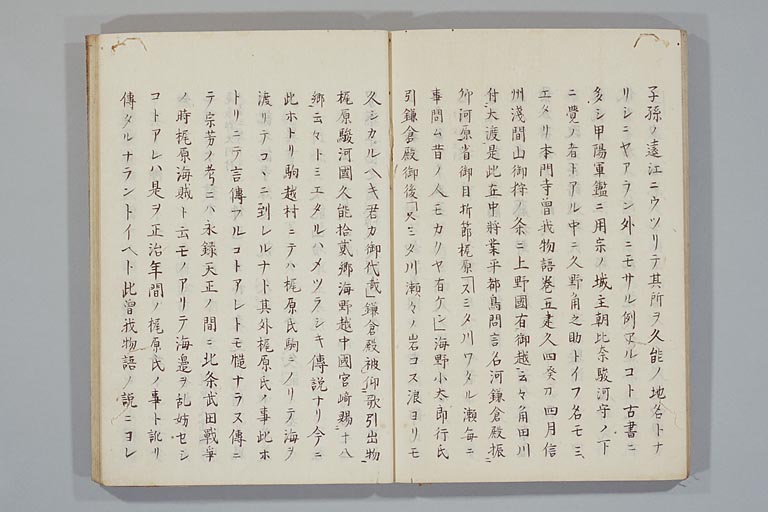 子孫ノ遠江ニウツリテ其所ヲ久能ノ地名トナ
リシニヤアラン外ニモサル例アルコト古書ニ
多シ甲陽軍鑑ニ用宗ノ城主朝比奈駿河守ノ下
ニ覺ノ者トアル中ニ久野角之助トイフ名モミ
エタリ本門寺曽我物語巻五建久四癸丑四月信
州淺間山御狩ノ条ニ上野國有御越云々角田川
付大渡是此在中將業平都鳥問言名河鎌倉殿振
仰河原省御目折節梶原「スミタ川ワタル瀬毎ニ
事問ム昔ノ人モカリヤ有ケン」海野小太郎行氏
引鎌倉殿御後「スミタ川瀬々ノ岩コス浪ヨリモ
久シカルヘキ君カ御代哉」鎌倉殿被仰歌引出物
梶原駿河國久能拾貳郷海野越中國宮崎賜十八
郷云々トミエタルハメツラシキ傳説ナリ今ニ
此ホトリ駒越村ニテハ梶原氏駒ニノリテ海ヲ
渡リテコヽニ到レルナト其外梶原氏ノ事此ホ
トリニテ言傳フルコトアレトモ慥ナラス傳ニ
テ宗芳ノ考ニハ永録天正ノ間ニ北条武田戦爭
ノ時梶原海賊ト云モノアリテ海邉ヲ乱妨セシ
コトアレハ是ヲ正治年間ノ梶原氏ノ事ト訛リ
傳タルナラントイヘト此曽我物語ノ説ニヨレ